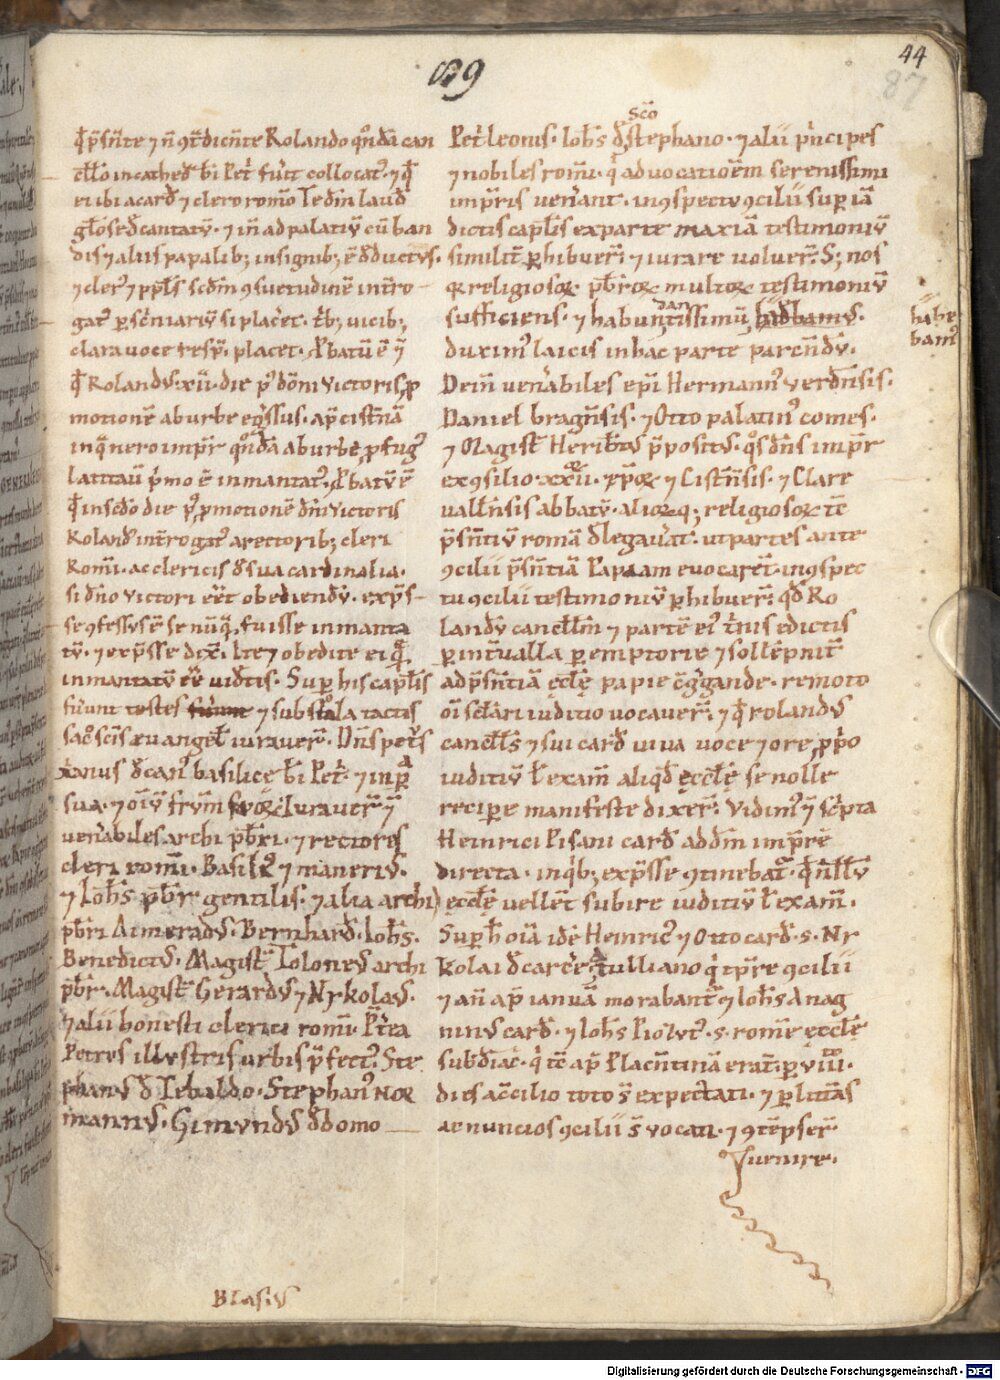 44
87
89
q̄ p̄sn̄te ⁊ n̄ ꝯt̄dicn̄te Rolando qn̊dā can
cell̄o in cathed̄ bi Pet̄ fuit collocat᷒ ⁊ q̄
ei ibi a card̄ ⁊ clero romo Te dm̄ laud̄
glōse d̄cantatū ⁊ in̄ ad palatiū cū ban
dis ⁊ aliis papalib; insignib; ē d̄ductus.
⁊ cler᷒ ⁊ ppl̄s scd̄m ꝯsuetudinē int̄ro
gat᷒ p̱ sc̄niariū si placet. t̄b; vicib;
clara voce resp̄. placet. P̱batū ē ⁊
q̄ Rolandus xii. die p᷒ dōni victoris ꝓ
motionē ab urbe eg̓ssus. ap̄ cistn̄ā
in q̄ nero imp̄r qn̊dā ab urbe ꝓfug᷒
latitaū p̓mo ē inmantat᷒. P̱batū ē
q̄ in scd̄o die p᷒ ꝓmotionē dn̄i victoris
Roland᷒ int̄rogat᷒ a rectorib; cleri
Rom̄. ac clericis d̄ sua cardinalia.
si dn̄o victori eēt obediendū. exp̄s
se ꝯfessus ē se nūq̄ fuisse inmanta
tū. ⁊ exp̄sse dix̄. Ite ⁊ obedite ei q̄
inmantatū eē vid̄tis. Sup̱ his capl̄is
fūunt testes ⁊ sub stola tactis
sac̊scīs euangel̄ iuraver̄. Dn̄s pet̄s
xanus d̄can᷒ basilicę bi Pet̄ ⁊ in p̱
sua. ⁊ oīū frūm suoꝝ iuraver̄ ⁊
uen̄abiles archi p̄bri. ⁊ rectores
cleri romī. Basili᷒ ⁊ manerius.
⁊ Ioh̄s p̄br gentilis. ⁊ alia archi
p̄bri Aimeradus. Bernhard̄. Ioh̄s.
Benedictus. Magist̄ Toloneus archi
p̄br. Magist̄ Gerardus ⁊ Nykolaus.
⁊ alii honesti clerici romī. P̄t̄ea
Petrus illustris urbis p̄fect᷒. Ste
phanus d̄ Tebaldo. Stephan᷒ Nor
mannus. Gimundus d̄ domo
Pet̄ leonis. Ioh̄s d̄ sc̄o stephano. ⁊ alii p̓ncipes
⁊ nobiles romī. q̓ ad vocatioēm serenissimi
imp̄ris ven̄ant. in ꝯspectu ꝯcilii sup̱ iā
dictis capl̄is ex parte maxiā testimoniū
similit̄ p̱hibuer̄. ⁊ iurare voluer̄. S; nos
q̄ religiosoꝝ p̄broꝝ multoꝝ testimoniū
sufficiens. ⁊ habundantissimū
habe
bam᷒
duxim᷒ laicis in hac parte parcn̄dū.
Dein̄ ven̄abiles ep̄i Hermann᷒ verdn̄sis.
Daniel bragn̄sis. ⁊ Otto palatin᷒ comes.
⁊ Magist̄ Heribt̄us p̄positus. q̊s dn̄s imp̄r
ex ꝯsilio xxii. ep̄oꝝ ⁊ Cistn̄sis. ⁊ Clare
vall̄nsis abbatū. alioꝝq; religiosoꝝ tc̄
p̄sn̄tiū romā d̄legaūat. ut partes ante
ꝯcilii p̄sn̄tiā Papiam evocarēt. in ꝯspec
tu ꝯcilii testimoniū p̱hibuer̄. qd̄ Ro
landū cancell̄m ⁊ partē ei᷒ t̓nis edictis
p̱ int̄ualla p̱emptorie ⁊ sollēpnit̄
ad p̄sn̄tiā ęccl̄ę papie cg̓gande. remoto
oī sclāri iuditio vocauer̄. ⁊ q̄ rolandus
cancell̄s ⁊ sui card̄ viva voce ⁊ ore ꝓprio
iuditiū l̄ exam̄ aliqd̄ ęccl̄ę se nolle
recipere manifeste dixer̄. Vidim᷒ ⁊ sc̓pta
Heinrici Pisani card̄ ad dn̄m imp̄rē
directa. in q̓b; exp̄sse ꝯtinebat̄. q̄ null̄ū
ęccl̄ę vellēt subire iuditiū l̄ exam̄.
Sup̱ h̄ oīa idē Heinric᷒ ⁊ Otto card̄. s. Ny
kolai d̄ carcēre tulliano q̓ tp̄re ꝯcilii
⁊ an̄ ap̄ ianuā morabant̄ ⁊ Ioh̄s Anag
ninus card̄. ⁊ Ioh̄s Piozut᷒. s. rome ęccl̄ę
subd̄iac̄. q̓ tc̄ ap̄ Placn̄tinā erat̄. p̱ viii.
dies a ꝯcilio toto s̄ expectati. ⁊ p̱ litt̄as
ac nuncios ꝯcilii s̄ vocati. ⁊ ꝯtēpser̄
venire.
Blasiu
Digitalisierung gefördert durch die Deutsche Forschungsgemeinschaft - DFG